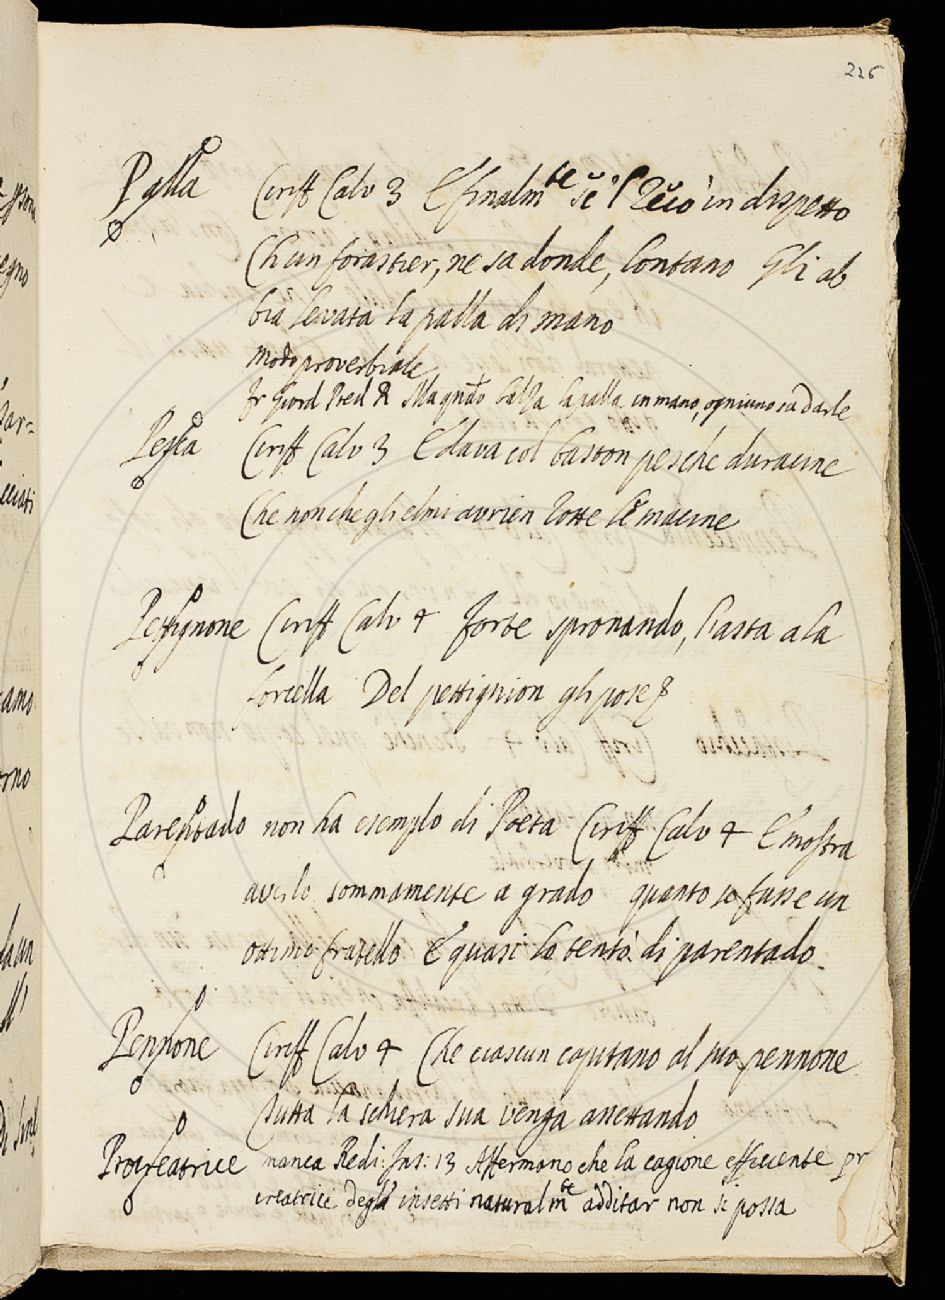 226
Palla Ciriff Calv 3 E finalm.te se l' recò in dispetto
Ch'un forastier, ne sa donde, lontano Gli ab
bia levata la palla di mano
modo proverbiale
Fr Giord Pred R Magn balza la palla in mano, ogniuno sa darle
Pesca Ciriff Calv 3 E dava col baston pesche duracine
Che non che gli elmi avrien rotte le macine
Pettignone Ciriff Calv 4 forte spronando, l'asta a la
forcella Del pettignion gli pose
Parentado non ha esemplo di Poeta Ciriff Calv 4 E mostra
averlo sommamente a grado quanto se fusse un
ottimo fratello E quasi lo tentò di parentado
Pennone Ciriff Calv 4 Che ciascun capitano al suo pennone
tutta la schiera sua venga assettando
Procreatrice manca Redi: Ins: 13 Affermano che la cagione efficiente pr
creatrice degl' insetti naturalm.te additar non si possa